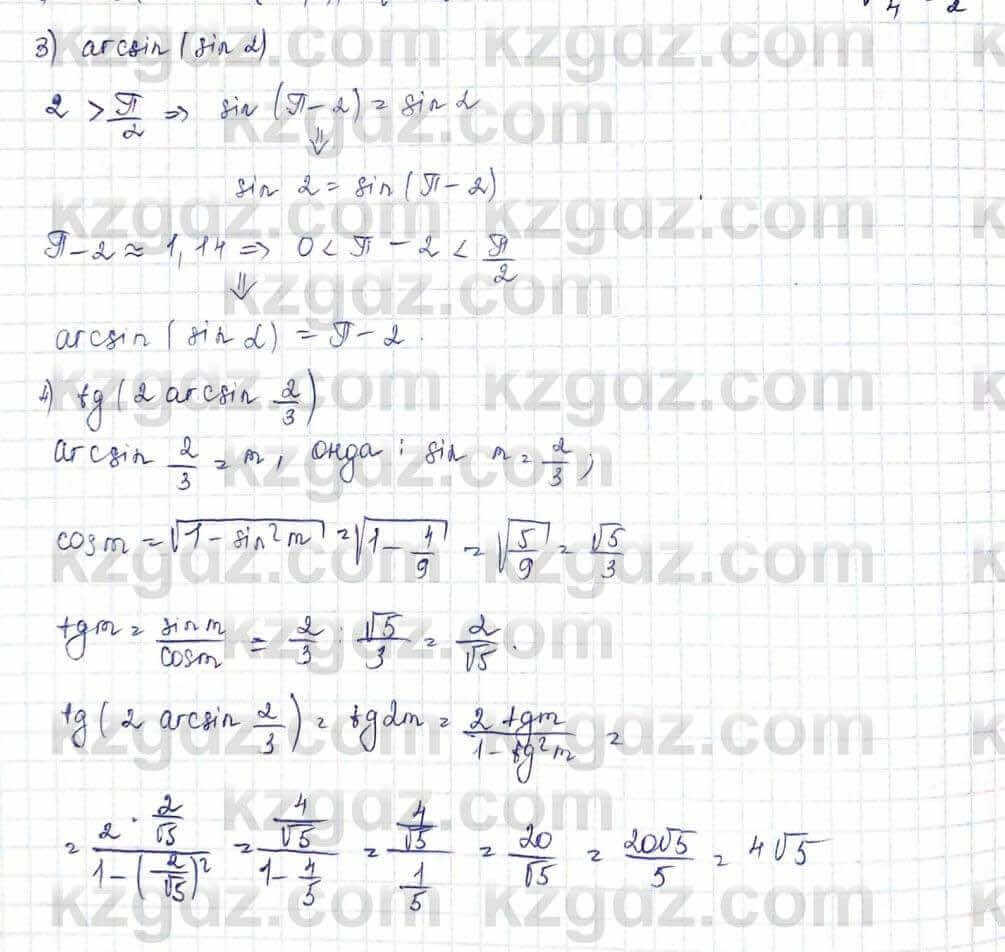 3) arcsin(sin 2)
2 > π/2 ⇒ sin(π-2) = sin 2
⇓
sin 2 = sin(π-2)
π-2 ≈ 1,14 ⇒ 0 < π - 2 < π/2
⇓
arcsin(sin 2) = π-2.
4) tg(2 arcsin 2/3)
arcsin 2/3 = m, онда: sin m = 2/3;
cos m = √(1 - sin²m) = √(1 - 4/9) = √(5/9) = √5/3
tg m = sin m/cos m = 2/3 : √5/3 = 2/√5.
tg(2 arcsin 2/3) = tg 2m = 2 tg m/(1 - tg²m) =
= (2 · 2/√5)/(1 - (2/√5)²) = (4/√5)/(1 - 4/5) = (4/√5)/(1/5) = 20/√5 = 20√5/5 = 4√5
kzgdz.com